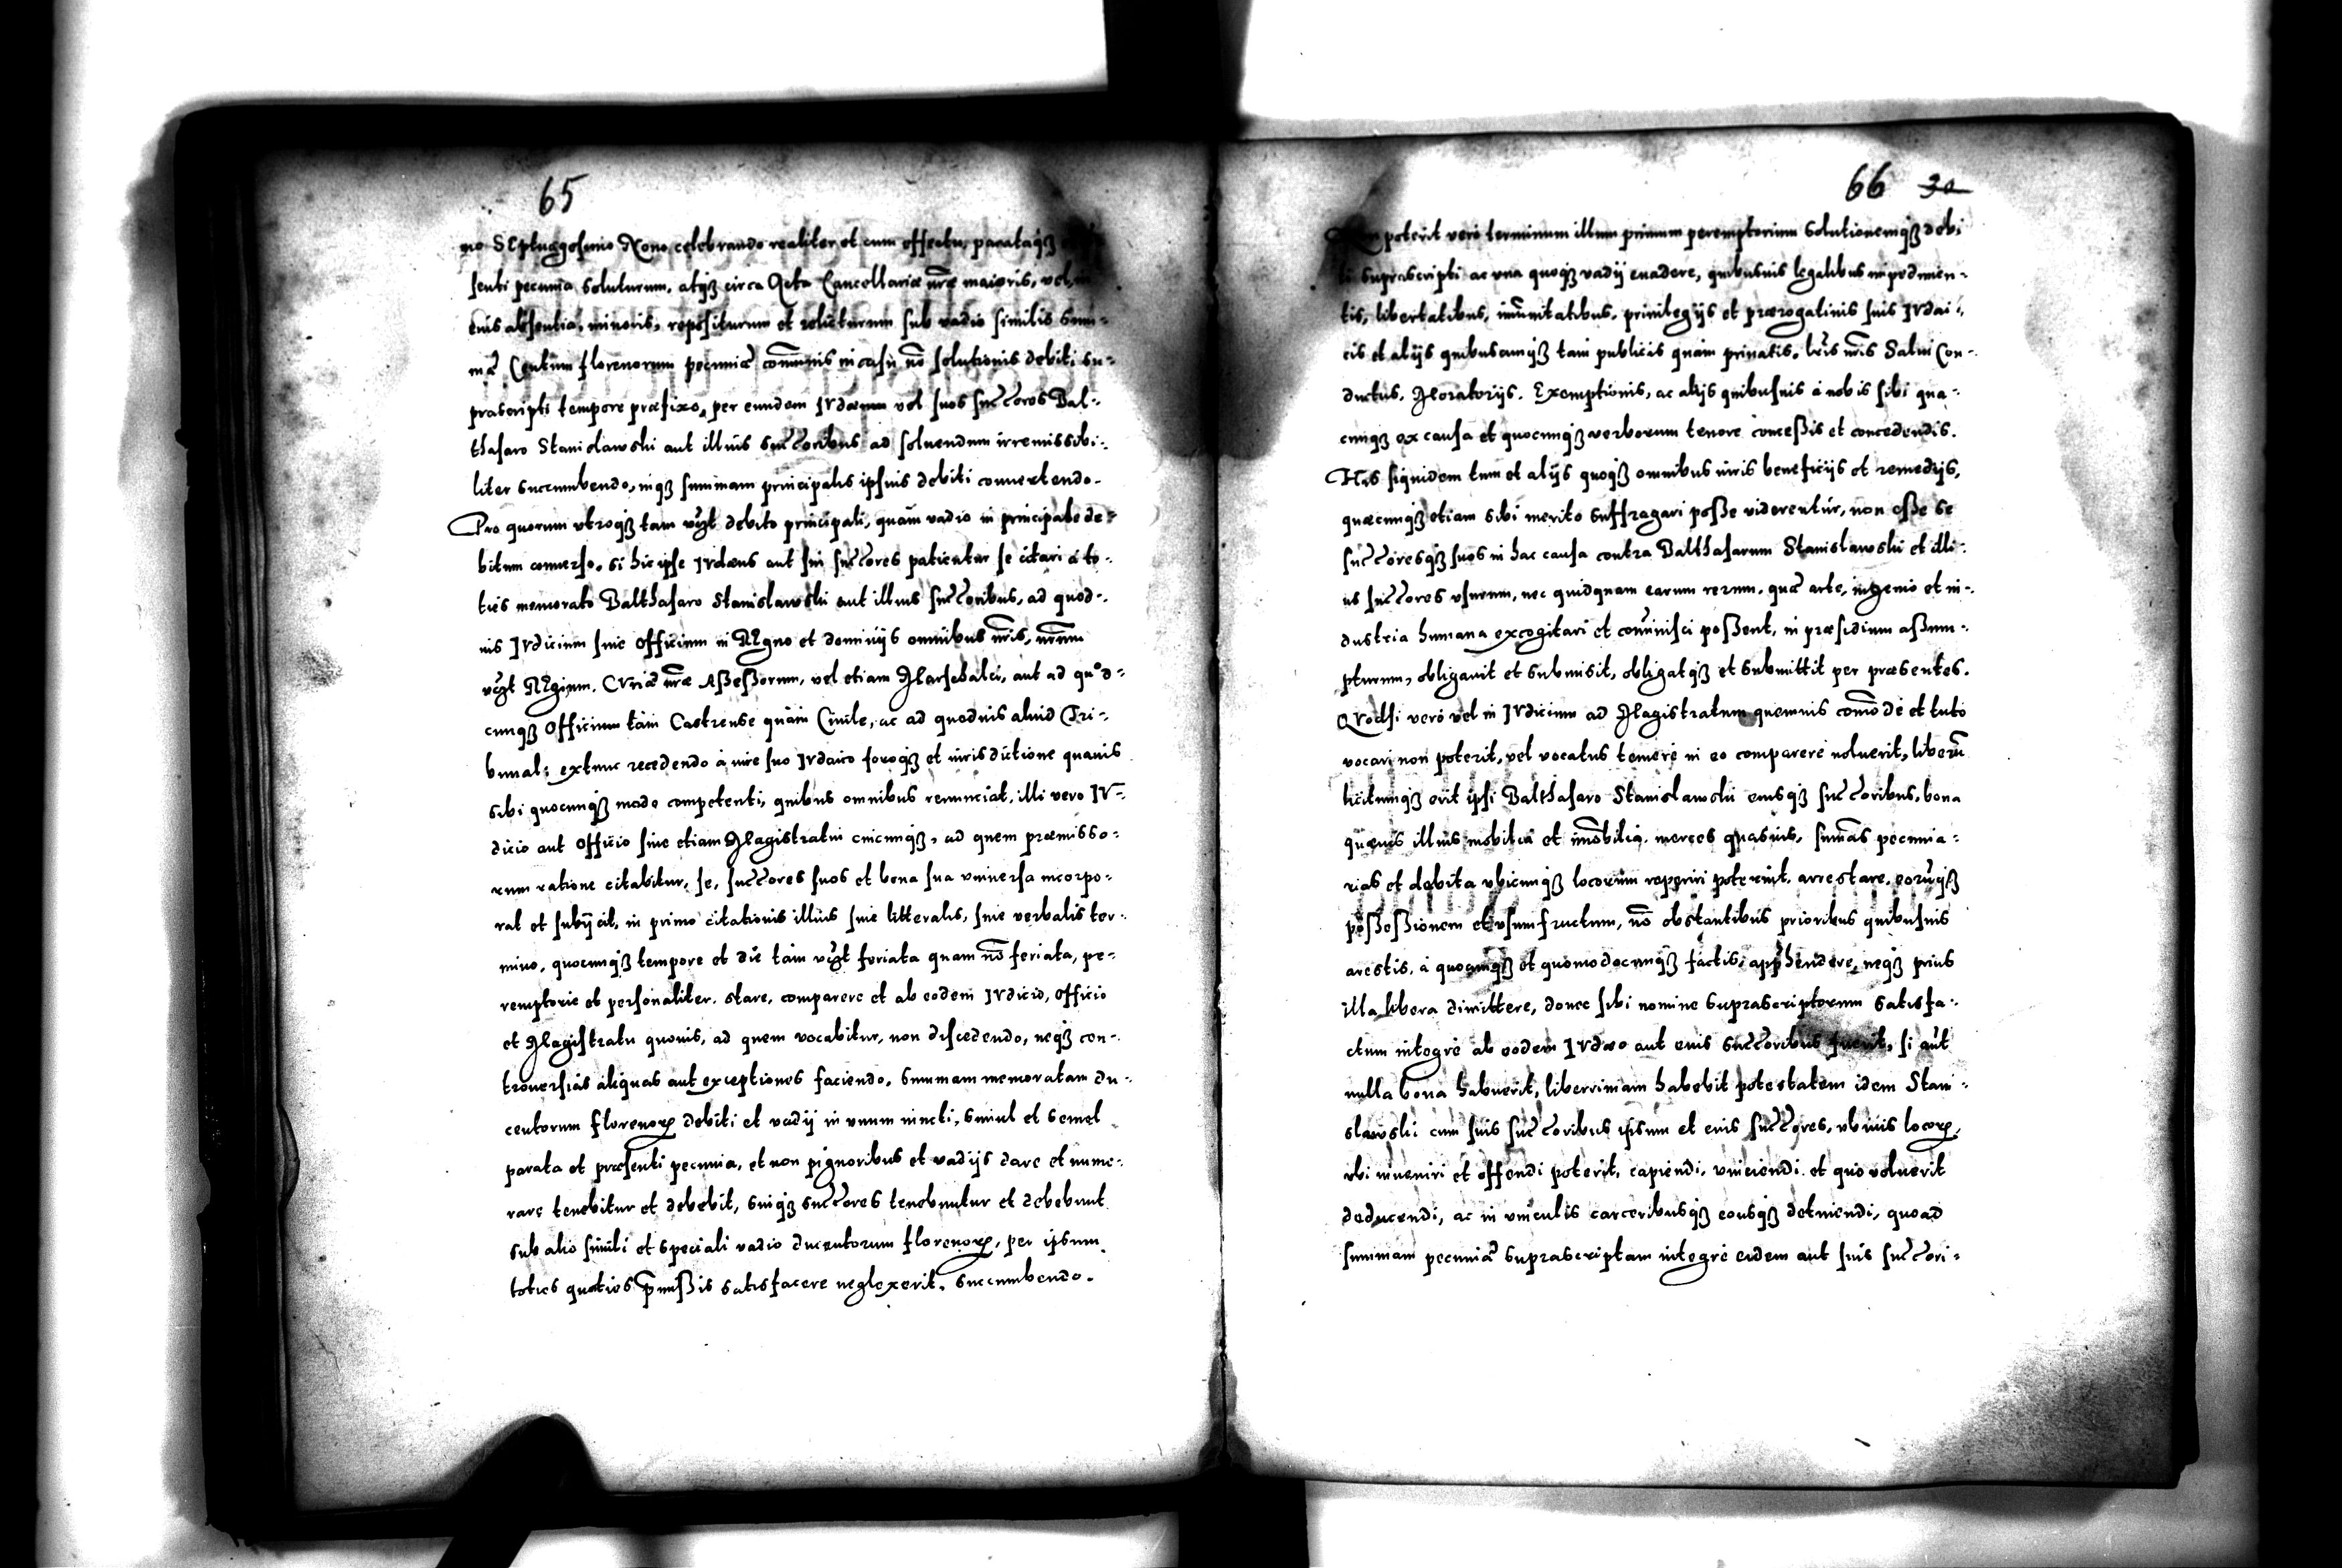 65
mo SEptuagesimo Nono celebrando realiter et cum effectu, parataqꝫ
senti pecunia soluturum, atqꝫ circa Acta Cancellariæ nr̃æ maioris, vel, in
euis absentia, minoris, repositurum et relicturum sub vadio similis Sum-
mæ Centum florenorum pecuniæ com̃unis in casu nõ solutionis debiti, su-
prascripti tempore præfixo, per eundem IVdæum vel suos suc̃cores Bal-
thasaro Stanislawski aut illius suc̃coribus ad soluendum irremissibi-
liter succumbendo, inqꝫ summam principalis ipsius debiti conuertendo.
Pro quorum vtroqꝫ tam vꝫt debito principali, quàm vadio in principale de-
bitum conuerso, si hic ipse IVdæus aut sui suc̃cores patientur se citari à to-
ties memorato Balthasaro Stanislawski aut illius suc̃coribus, ad quod-
uis IVdicium siue Officium in REgno et dominijs omnibus nr̃is, nr̃um
vꝫt REgium, CVriæ nr̃æ Aßeßorum, vel etiam Marschalci, aut ad quod-
cunqꝫ Officium tàm Castrense quàm Ciuile, ac ad quoduis aliud Tri-
bunal; extunc recedendo à iure suo IVdaico foroqꝫ et iurisdictione quauis
sibi quocunqꝫ modo competenti, quibus omnibus renunciat, illi vero IV-
dicio aut Officio siue etiam Magistratui cuicunqꝫ, ad quem præmisso-
rum ratione citabitur, se, suc̃cores suos et bona sua vniuersa incorpo-
rat et subijcit, in primo citationis illius siue litteralis, siue verbalis ter-
mino, quocunqꝫ tempore et die tàm vꝫt feriata quam nõ feriata, pe-
remptorie et personaliter. stare, comparere et ab eodem IVdicio, Officio
et Magistratu quouis, ad quem vocabitur, non discedendo, neqꝫ con-
trouersias aliquas aut exceptiones faciendo, Summam memoratam du-
centorum florenoꝝ debiti et vadij in vnum iuncti, simul et semel
parata et præsenti pecunia, et non pignoribus et vadijs dare et nume-
rare tenebitur et debebit, suiqꝫ suc̃cores tenebuntur et debebunt
sub alio simili et speciali vadio ducentorum florenoꝝ, per ipsum
toties quoties p̃mißis satisfacere neglexerit, succumbendo.
66 30
poterit verò terminum illum primum peremptorium solutionemqꝫ debi
ti suprascripti ac vna quoqꝫ vadij euadere, quibusuis legalibus impedimen-
tis, libertatibus, im̃unitatibus, priuilegijs et prærogatiuis suis IVdai-
cis et alijs quibuscunqꝫ tàm publicis quàm priuatis, lr̃is nr̃is Salui Con-
ductus, Moratorijs, Exemptionis, ac alijs quibusuis à nobis sibi qua-
cunqꝫ ex causa et quocunqꝫ verborum tenore conceßis et concedendis.
His siquidem tum et alijs quoqꝫ omnibus iuris beneficijs et remedijs,
quæcunqꝫ etiam sibi merito suffragari poße viderentur, non eße se
suc̃coresqꝫ suos in hac causa contra Balthasarum Stanislawski et illi-
us suc̃cores vsurum, nec quidquam earum rerum, quæ arte, ingenio et in-
dustria humana excogitari et com̃inisci poßent, in præsidium aßum-
pturum, obligauit et submisit, obligatqꝫ et submittit per præsentes.
QVodsi verò vel in IVdicium ad Magistratum quemuis com̃odè et tuto
vocari non poterit, vel vocatus temerè in eo comparere noluerit, liberũ
licitumqꝫ erit ipsi Balthasaro Stanislawski eiusqꝫ suc̃coribus, bona
quæuis illius mobilia et im̃obilia, merces quasuis, sum̃as pecunia-
rias et debita vbicunqꝫ locorum reperiri poterint, arrestare, eorũqꝫ
poßeßionem et vsumfructum, nõ obstantibus prioribus quibusuis
arestis, à quocunqꝫ et quomodocunqꝫ factis, app̃hendere, neqꝫ prius
illa libera dimittere, donec sibi nomine suprascriptorum satisfa-
ctum integrè ab eodem IVdæo aut euis suc̃coribus fuerit, si aũt
nulla bona habuerit, liberrimam habebit potestatem idem Stani-
slawski cum suis suc̃coribus ipsum et euis suc̃cores, vbiuis locoꝝ,
vbi inueniri et offendi poterit, capiendi, vinciendi et quo voluerit
deducendi, ac in vinculis carceribusqꝫ eousqꝫ detinendi, quoad
summam pecuniæ suprascriptam integrè eidem aut suis suc̃cori-